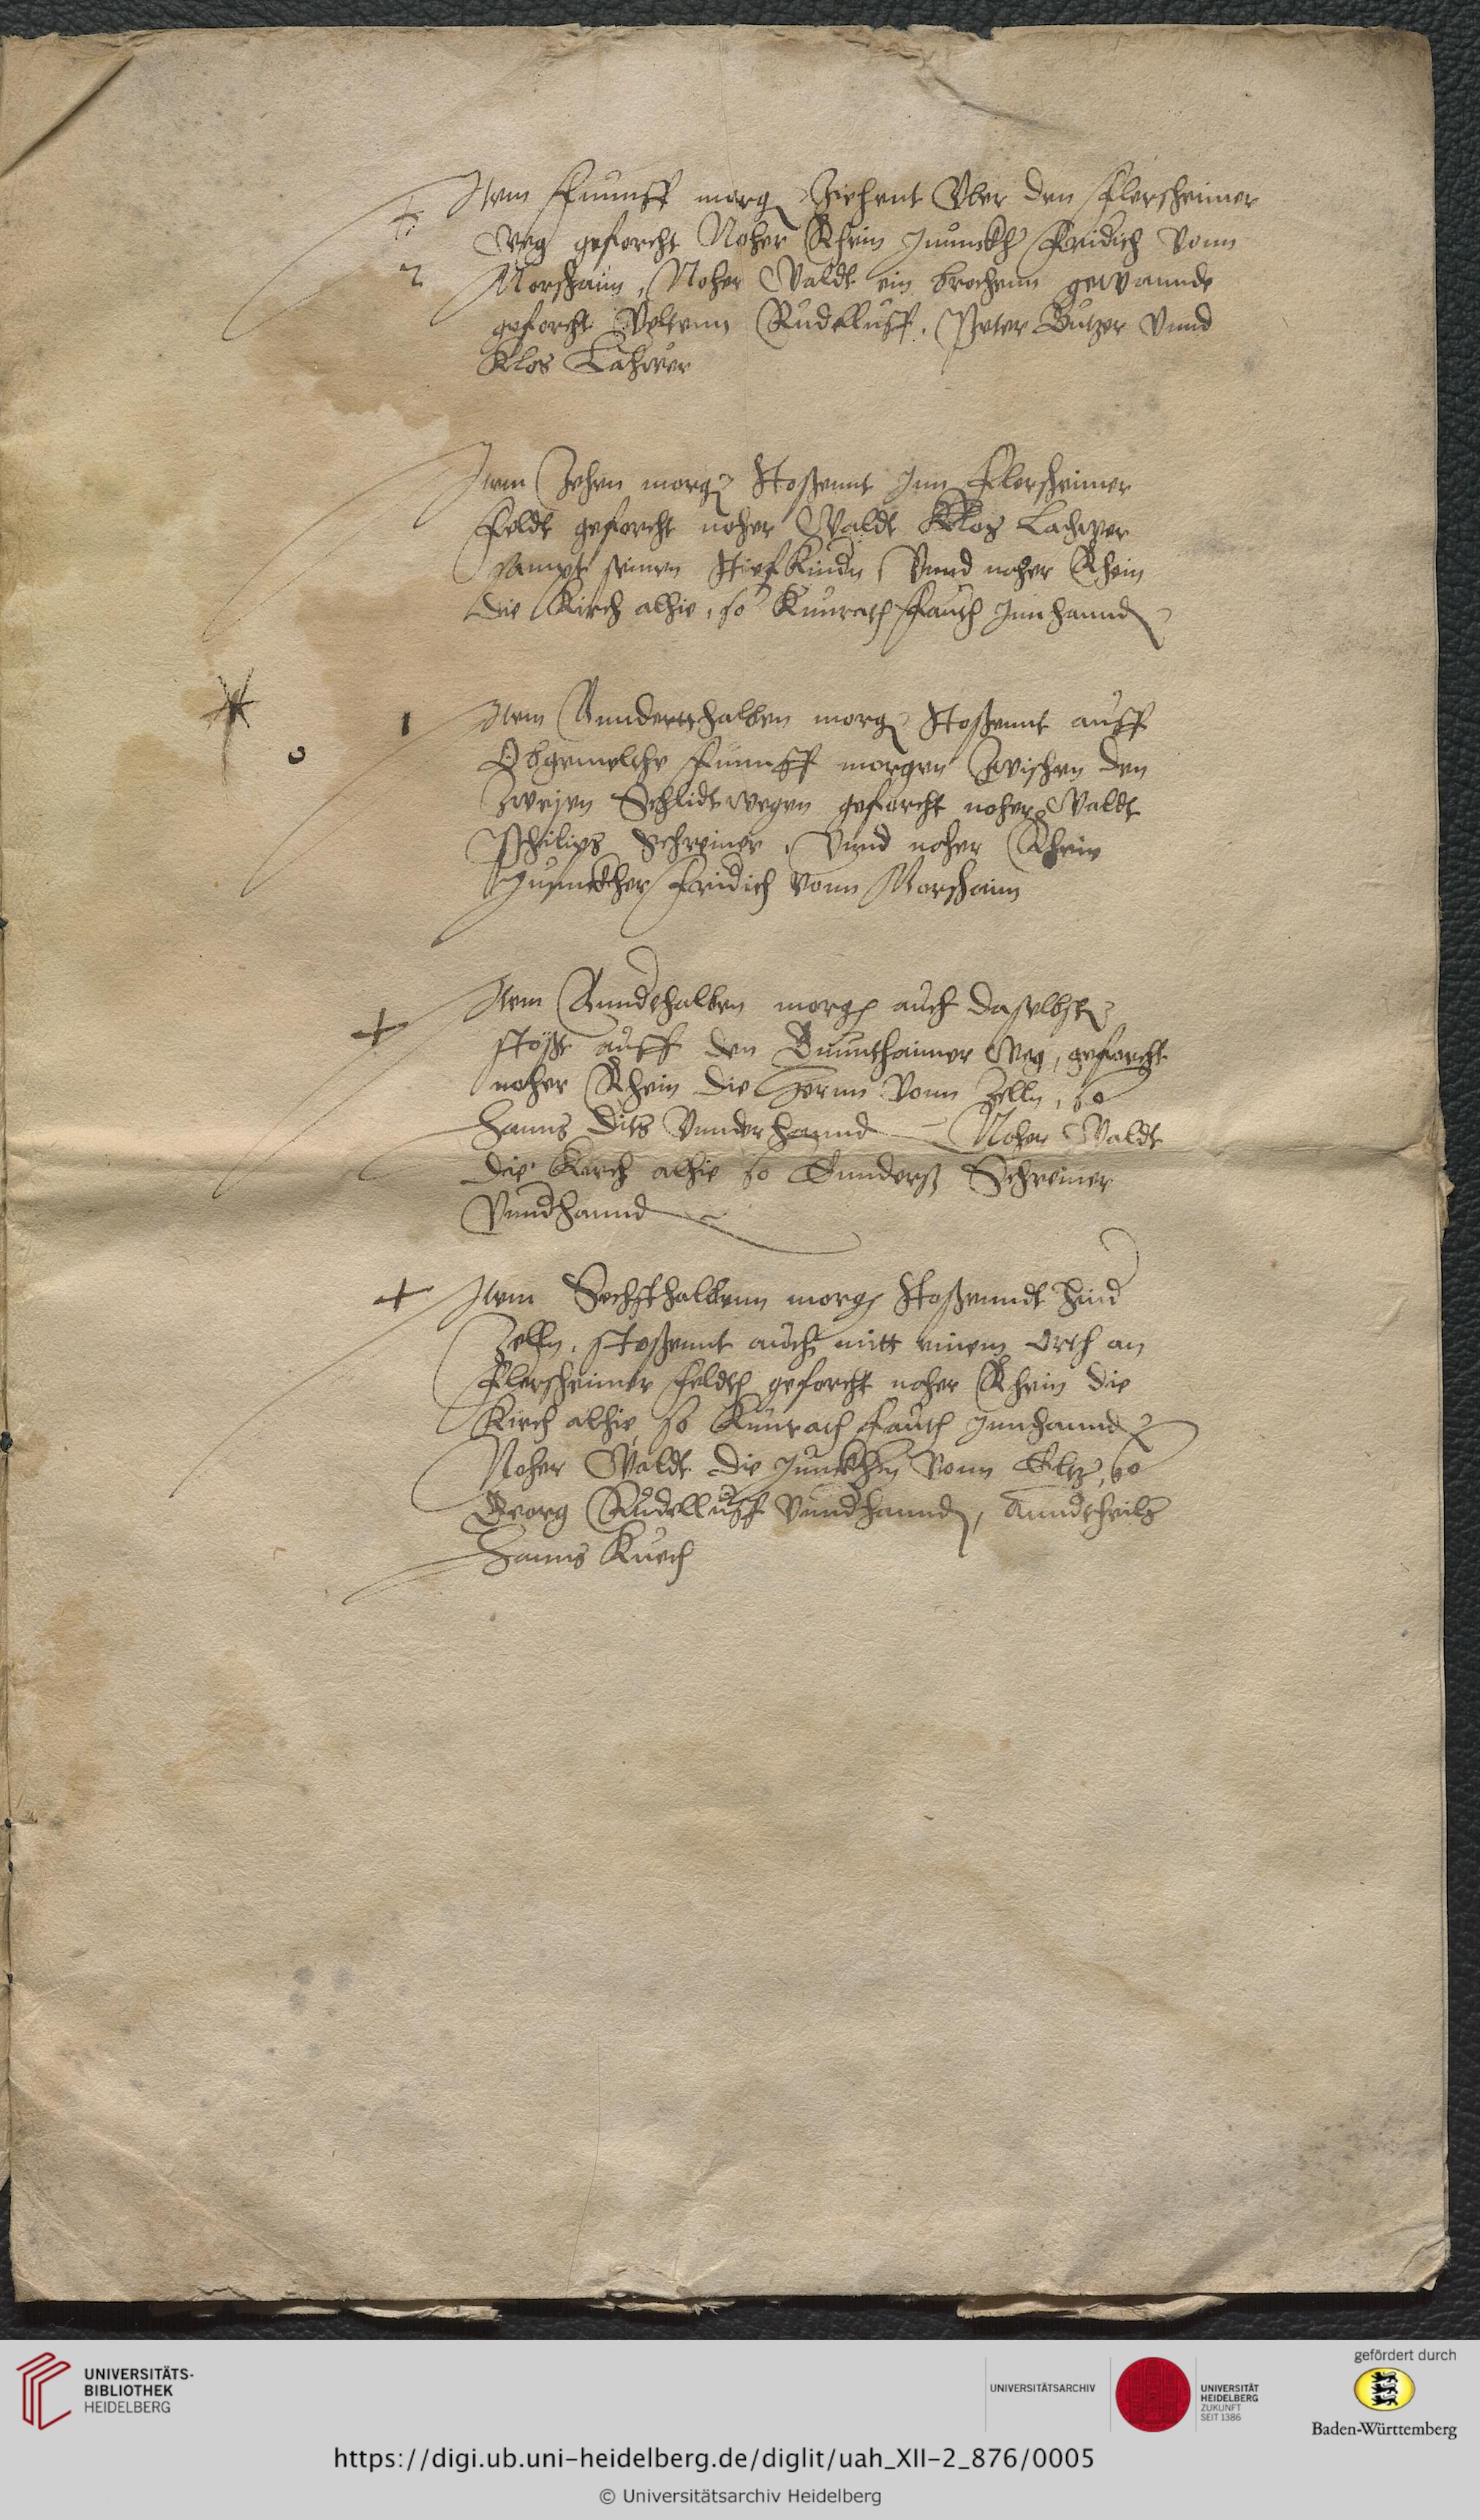 Item Fuunff morg Ziehent Vber den Flersheimer
Weg geforcht Noher Rhein Juunckh Fridich vonn
2 Morshaim, Noher Waldt ein brochenn gewannde
geforcht Veltenn Rudelluff. Peter Butzer vnnd
Klos Lacher
Item Zehen morg Stoßennt Inn Flersheimer
Feldt geforcht noher Waldt Klos Lacher
sampt seinen Stiefkindn, Vnnd noher Rhein
die Kirch alhie, so Kunrath Fauth Innhannd
1 Item Annderthalben morg Stoßennt auff
Obgemelthe Fuunff morgen Zwischen den
Zweyen Schlidtwegen geforcht noher Waldt
Philips Schreiner, Vnnd noher Rhein
Juunckher Fridich vonn Morshaim
Item Anndthalben morg auch daselbst
stößt auff den Weg, geforcht
noher Rhein die Hernn vonn Zelln, so
Hanns Dits Vnnderhannd Noher Waldt
die Kirch alhie so Schreiner
Vnndhannd
Item Sechsthalbenn morg Stoßenndt hind
Zelln, stoßennt auch mitt einem orth an
Flersheimer Feldt geforcht noher Rhein die
Kirch alhie, so Kunrath Fauth Innhannd
Noher Waldt die Junckhn vonn Eltz, so
Georg Rudelluff Vnndhannd, Anndtheils
Hanns Kuech
UNIVERSITÄTS-
BIBLIOTHEK
HEIDELBERG
UNIVERSITÄTSARCHIV
UNIVERSITÄT
HEIDELBERG
ZUKUNFT
SEIT 1386
gefördert durch
Baden-Württemberg
https://digi.ub.uni-heidelberg.de/diglit/uah_XII-2_876/0005
© Universitätsarchiv Heidelberg